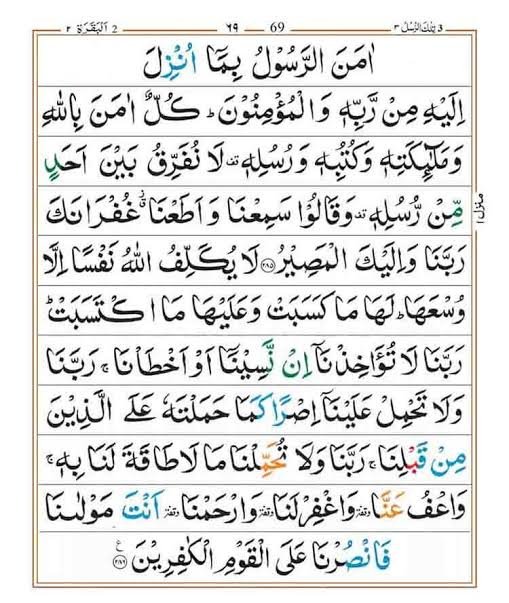 3 تِلْكَ الرُّسُلُ ٣ 69 ٦٩ 2 اَلْبَقَرَة ٢
اٰمَنَ الرَّسُوْلُ بِمَاۤ اُنْزِلَ
اِلَيْهِ مِنْ رَّبِّهٖ وَالْمُؤْمِنُوْنَ ؕ كُلٌّ اٰمَنَ بِاللّٰهِ
وَمَلٰٓئِكَتِهٖ وَكُتُبِهٖ وَرُسُلِهٖ قف لَا نُفَرِّقُ بَيْنَ اَحَدٍ
مِّنْ رُّسُلِهٖ قف وَقَالُوْا سَمِعْنَا وَاَطَعْنَا ق غُفْرَانَكَ
رَبَّنَا وَاِلَيْكَ الْمَصِيْرُ ۝٢٨٥ لَا يُكَلِّفُ اللّٰهُ نَفْسًا اِلَّا
وُسْعَهَا ؕ لَهَا مَا كَسَبَتْ وَعَلَيْهَا مَا اكْتَسَبَتْ ؕ
رَبَّنَا لَا تُؤَاخِذْنَاۤ اِنْ نَّسِيْنَاۤ اَوْ اَخْطَاْنَا ۚ رَبَّنَا
وَلَا تَحْمِلْ عَلَيْنَاۤ اِصْرًا كَمَا حَمَلْتَهٗ عَلَى الَّذِيْنَ
مِنْ قَبْلِنَا ۚ رَبَّنَا وَلَا تُحَمِّلْنَا مَا لَا طَاقَةَ لَنَا بِهٖ ۚ
وَاعْفُ عَنَّا وقفة وَاغْفِرْ لَنَا وقفة وَارْحَمْنَا وقفة اَنْتَ مَوْلٰىنَا
فَانْصُرْنَا عَلَى الْقَوْمِ الْكٰفِرِيْنَ ۝٢٨٦ ع
منزل ١